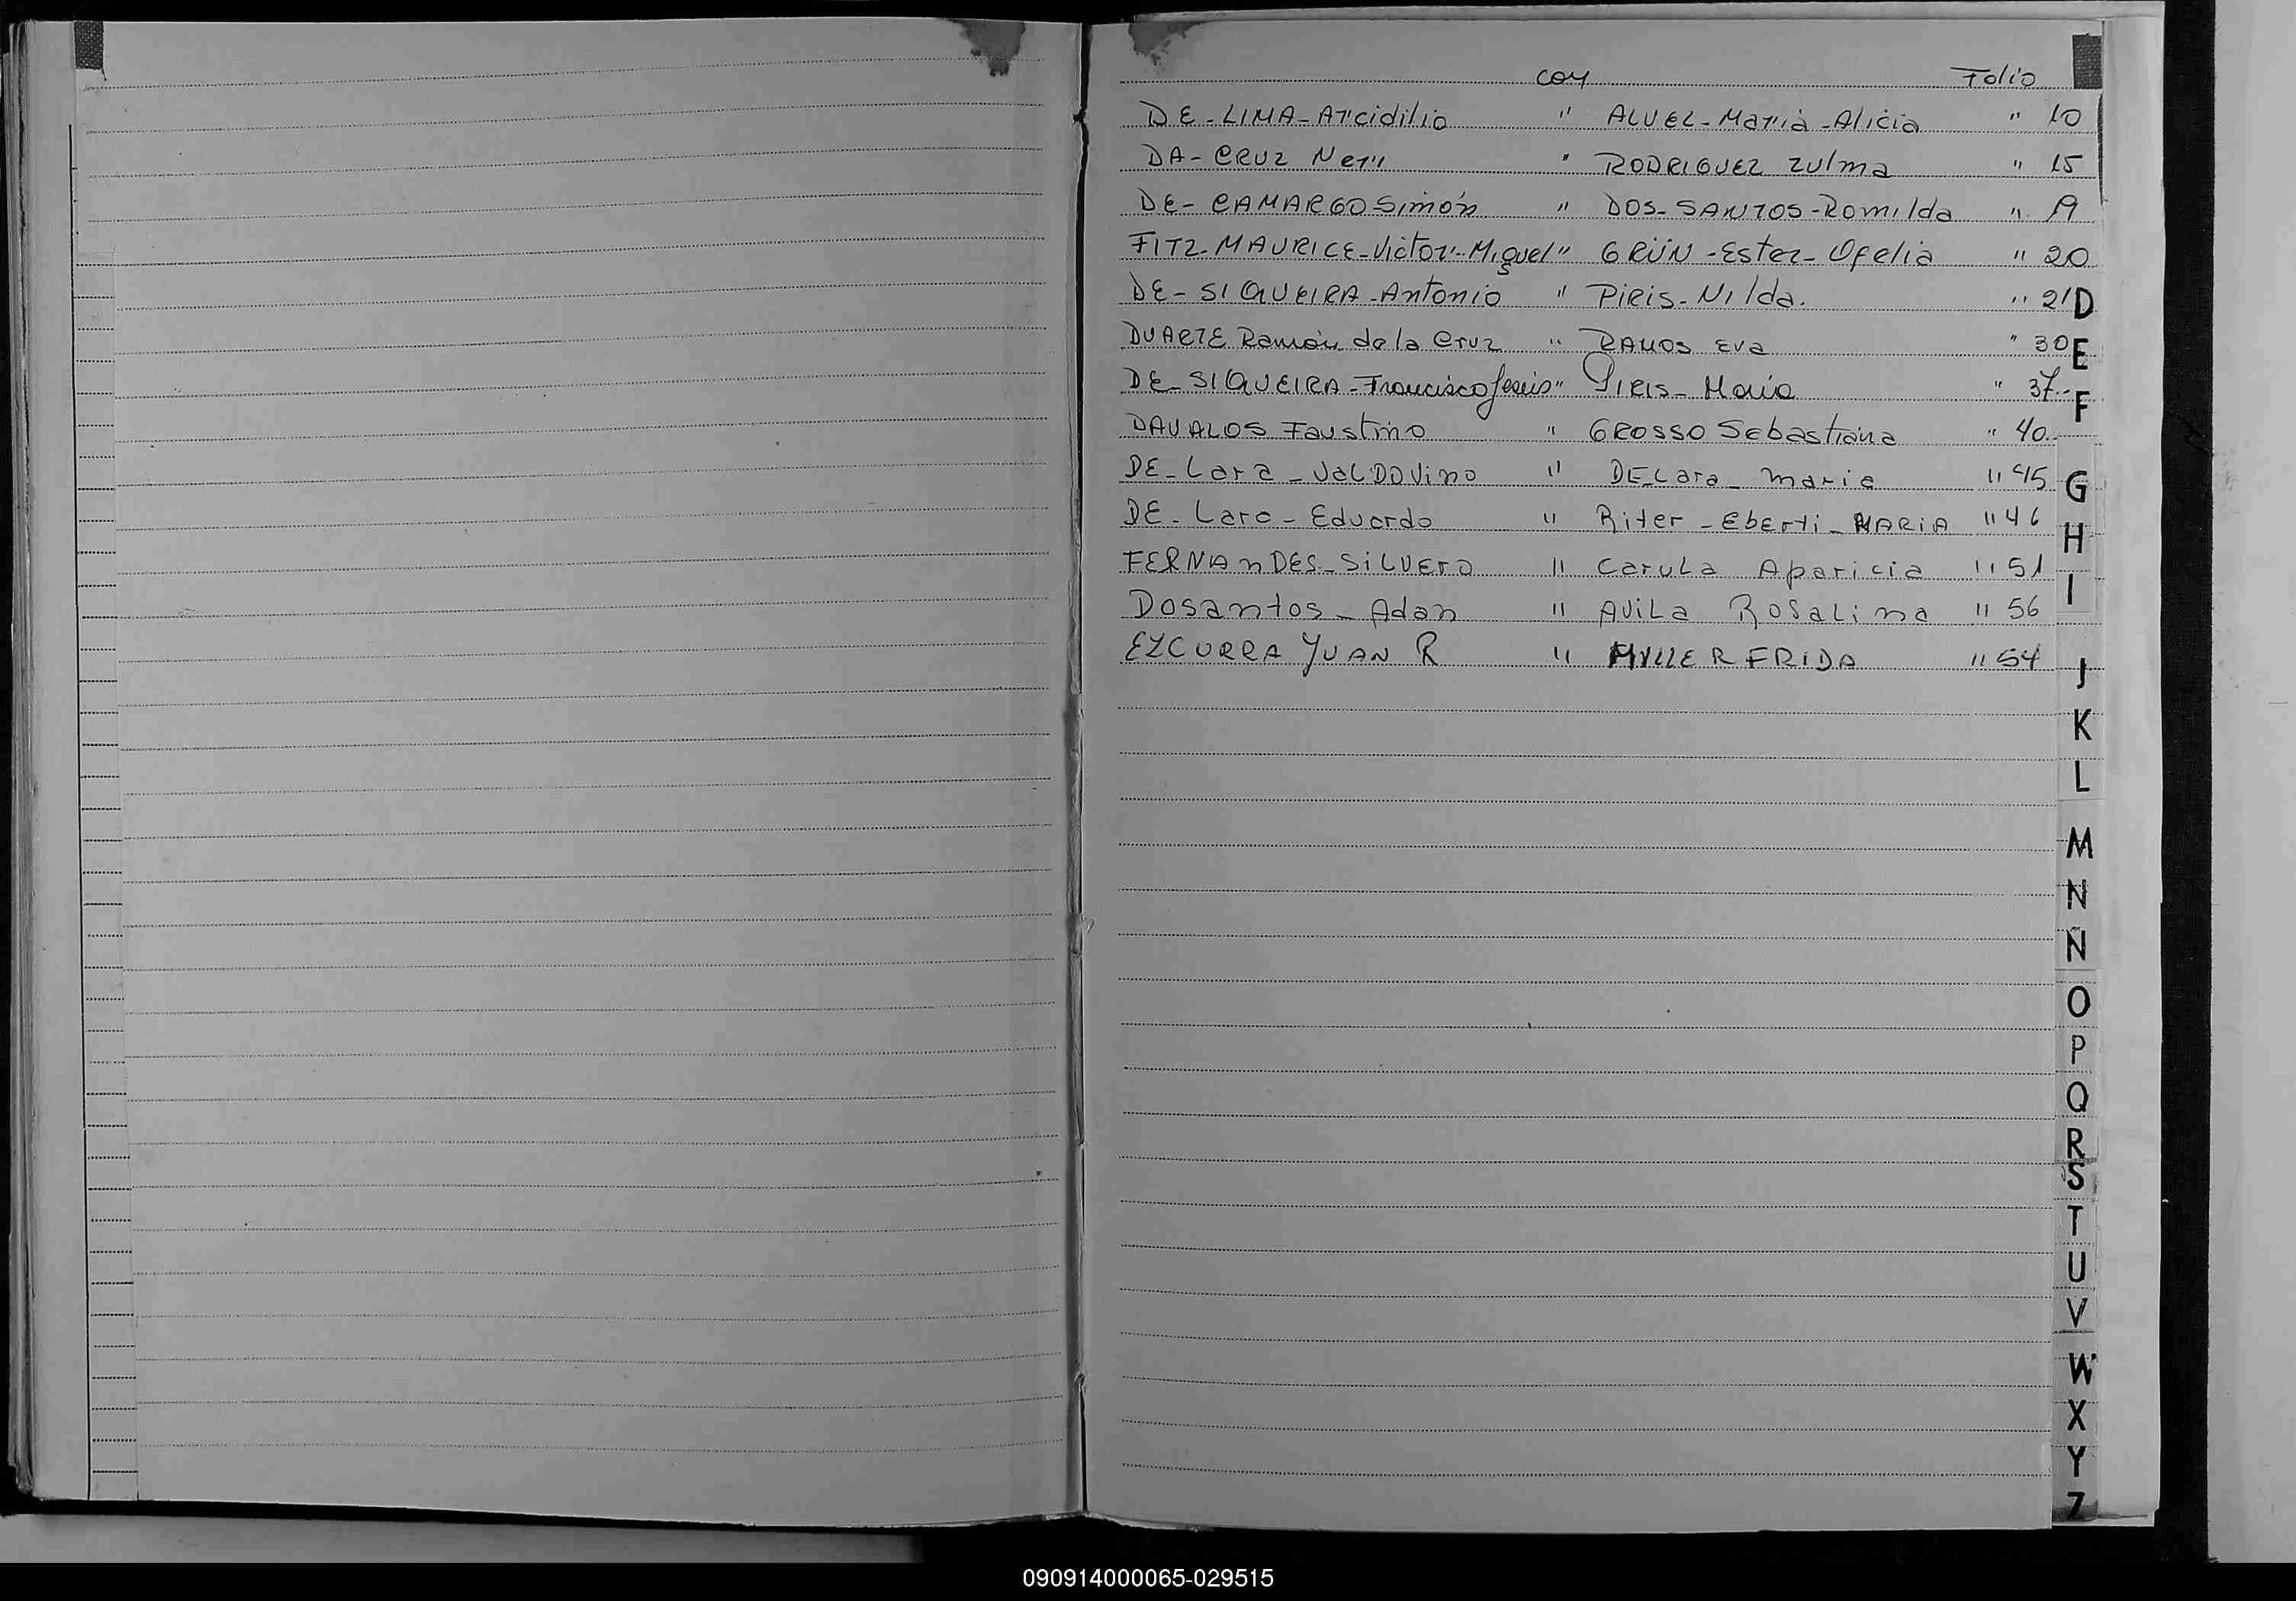 con Folio
DE-LIMA-Arcidilio " ALVEZ-María-Alicia " 10
DA-CRUZ Neri " RODRIGUEZ Zulma " 15
DE-CAMARGO Simón " DOS-SANTOS-Romilda "
FITZ-MAURICE-Victor-Miguel " GRÜN-Ester-Ofelia " 20
DE-SIQUEIRA-Antonio " PIRIS-Nilda. " 21
DUARTE Ramón de la Cruz " RAMOS Eva " 30
DE-SIQUEIRA-Francisco " PIRIS-Maria " 37.-
DAVALOS Faustino " GROSSO Sebastiana " 40.
DE-Lara-ValDOVino " DE-Lara-maria " 45
DE-Lara-Eduardo " Riter-Eberti-MARIA " 46
FERNAnDES-SiLVEro " Carula Aparicia " 51
Dosantos-Adan " AviLa RoSaLina " 56
EZCURRA JUAN R " MYLLER FRIDA " 54
D
E
F
G
H
I
J
K
L
M
N
Ñ
O
P
Q
R
S
T
U
V
W
X
Y
Z
090914000065-029515